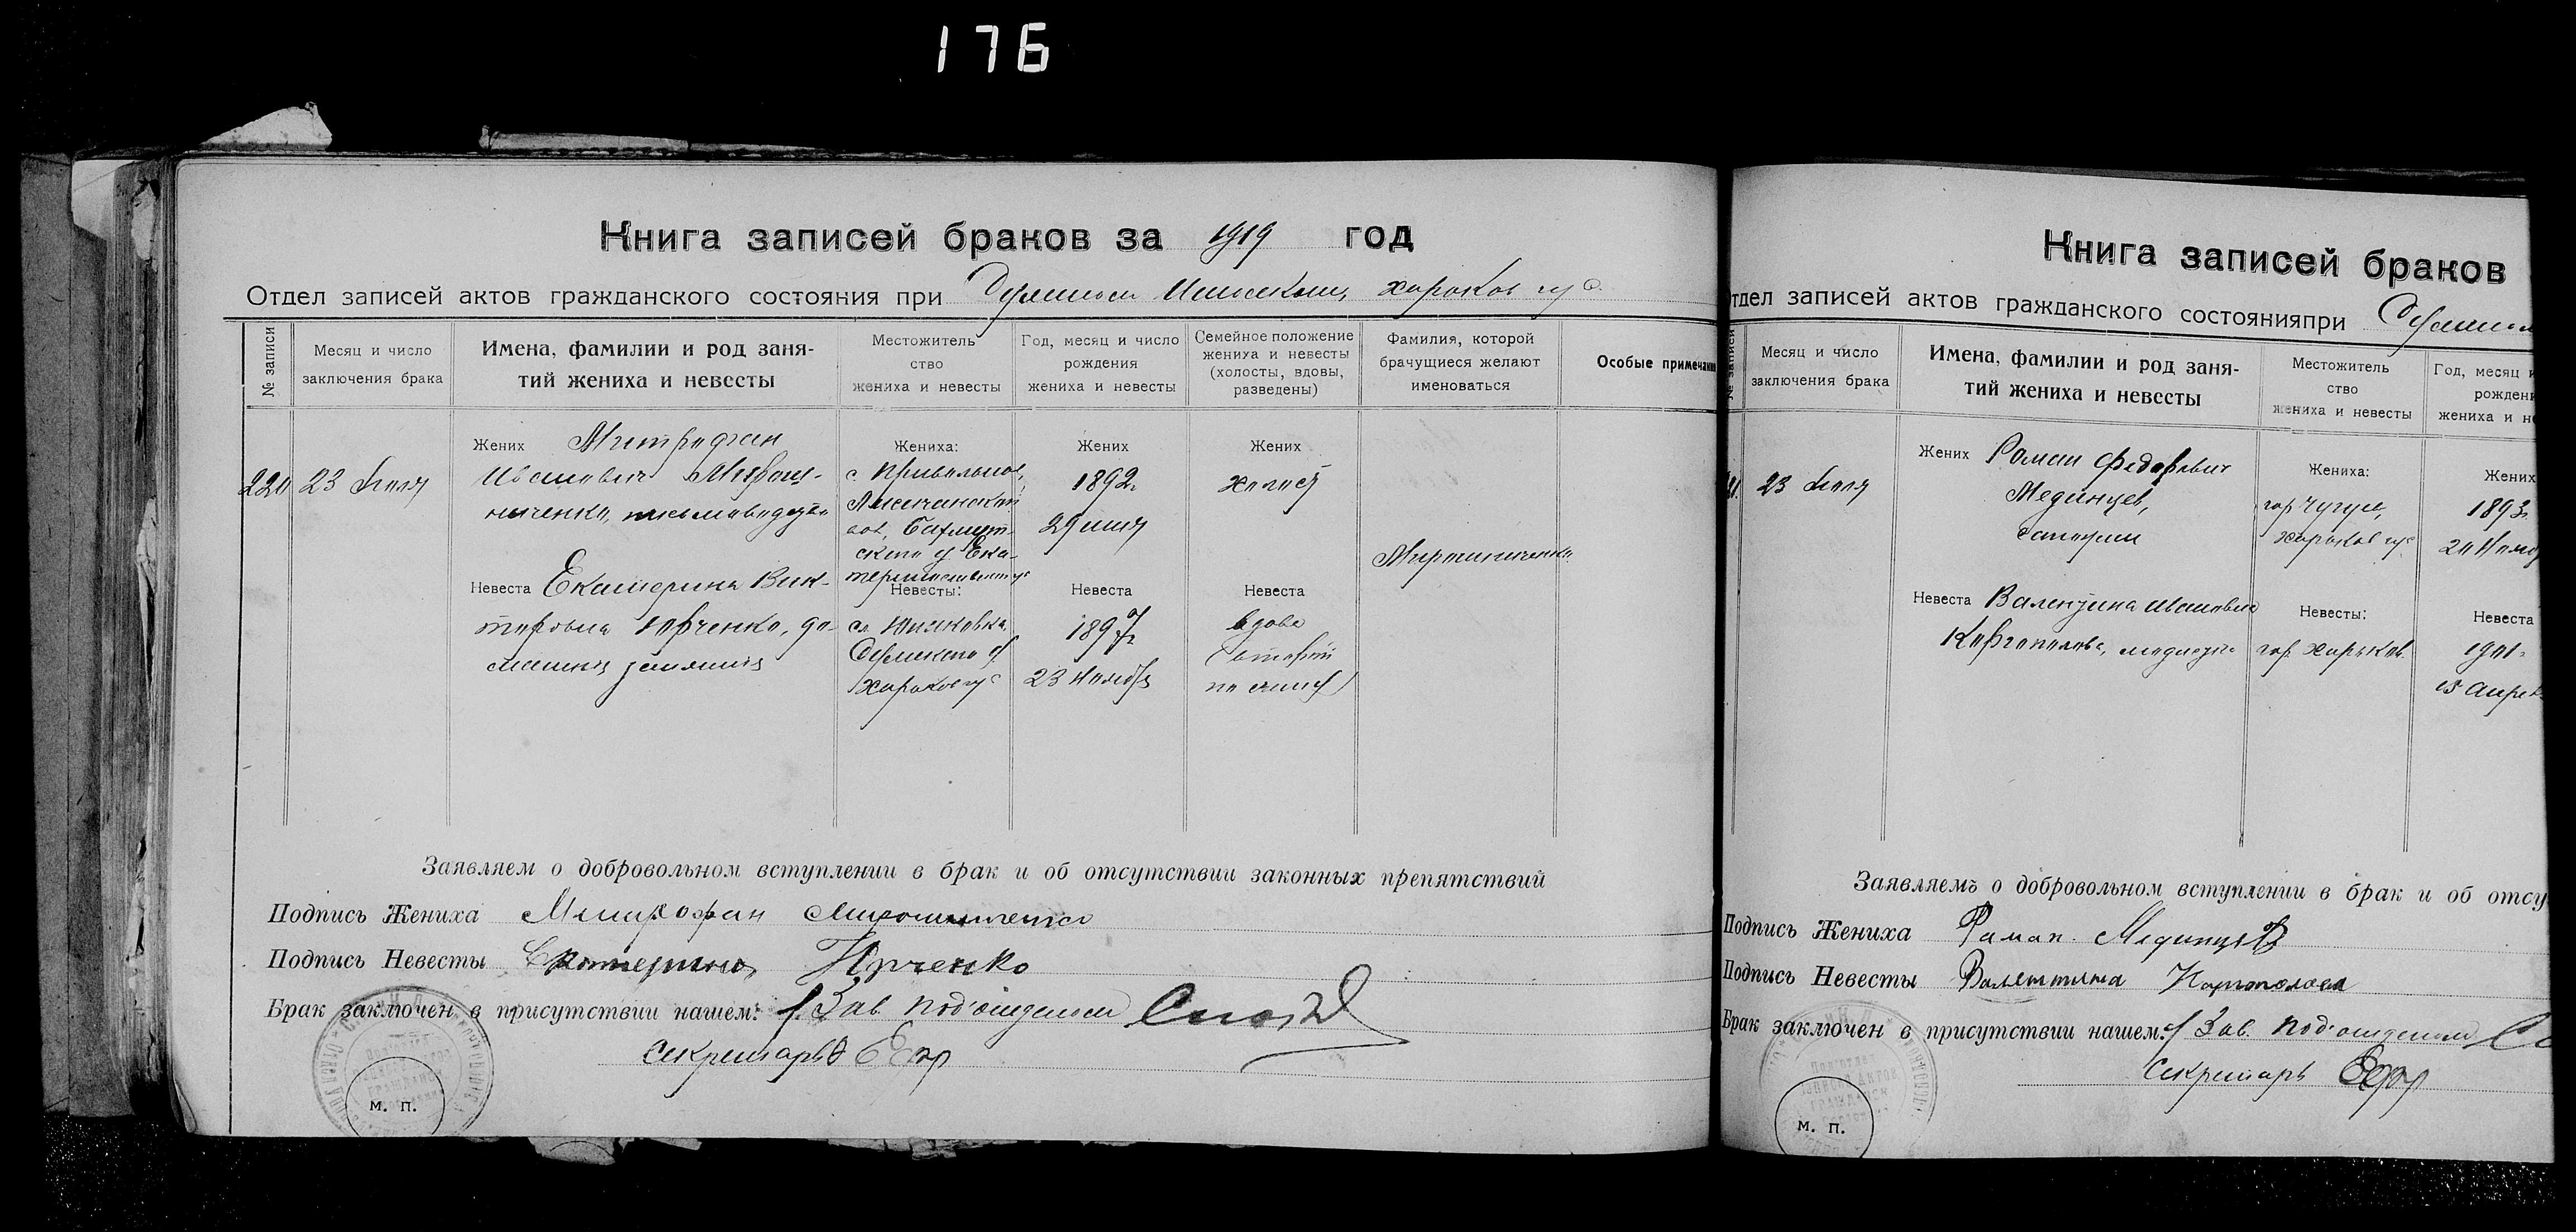 176
Книга записей браков за 1919 год
Отдел записей актов гражданского состояния при Сумском Исполкоме, Харьков губ.
№ записи
Месяц и число
заключения брака
Имена, фамилии и род заня-
тий жениха и невесты
Местожитель
ство
жениха и невесты
Год, месяц и число
рождения
жениха и невесты
Семейное положение
жениха и невесты
(холосты, вдовы,
разведены)
Фамилия, которой
брачущиеся желают
именоваться
Особые примечани
220
23 Июля
Жених Митрофан
Иванович Мирош-
ниченко, письмоводитель
Невеста Екатерина Вик-
торовна Юрченко, до-
машния занятия
Жениха:
с. Привольное,
вол, Бахмут-
ского у Ека-
теринославск губ
Невесты:
сл. Юнаковка,
Сумского у.
Харьков губ
Жених
1892г.
29 мая
Невеста
1897г.
23 Ноября
Жених
холост
Невеста
вдова
(вторым
по счету)
Мирошниченко
Заявляем о добровольном вступлении в брак и об отсутствии законных препятствий
Подпись Жениха Митрофан Мирошниченко
Подпись Невесты Екатерина Юрченко
Брак заключен в присутствии нашем: Зав. Под'отделом
Секретарь
м. п.
Книга записей браков
тдел записей актов гражданского состоянияпри Сумском
№ записи
Месяц и число
заключения брака
Имена, фамилии и род заня-
тий жениха и невесты
Местожитель
ство
жениха и невесты
Год, месяц и
рожден
жениха и не
23 Июля
Жених Роман Федорович
Мединцев,
Невеста Валентина Ивановна
Каргополова, медсестра
Жениха:
гор Чугуев,
Харьков губ
Невесты:
гор. Харьков.
Жених
1893г.
20 Нояб
Невеста
1901г.
15 Апрел
Заявляемъ о добровольном вступлении в брак и об отсу
Подпись Жениха Раман Мединцев
Подпись Невесты Валентина Каргополова
Брак заключен в присутствии нашем: Зав. Под'отделом
Секретарь
м. п.